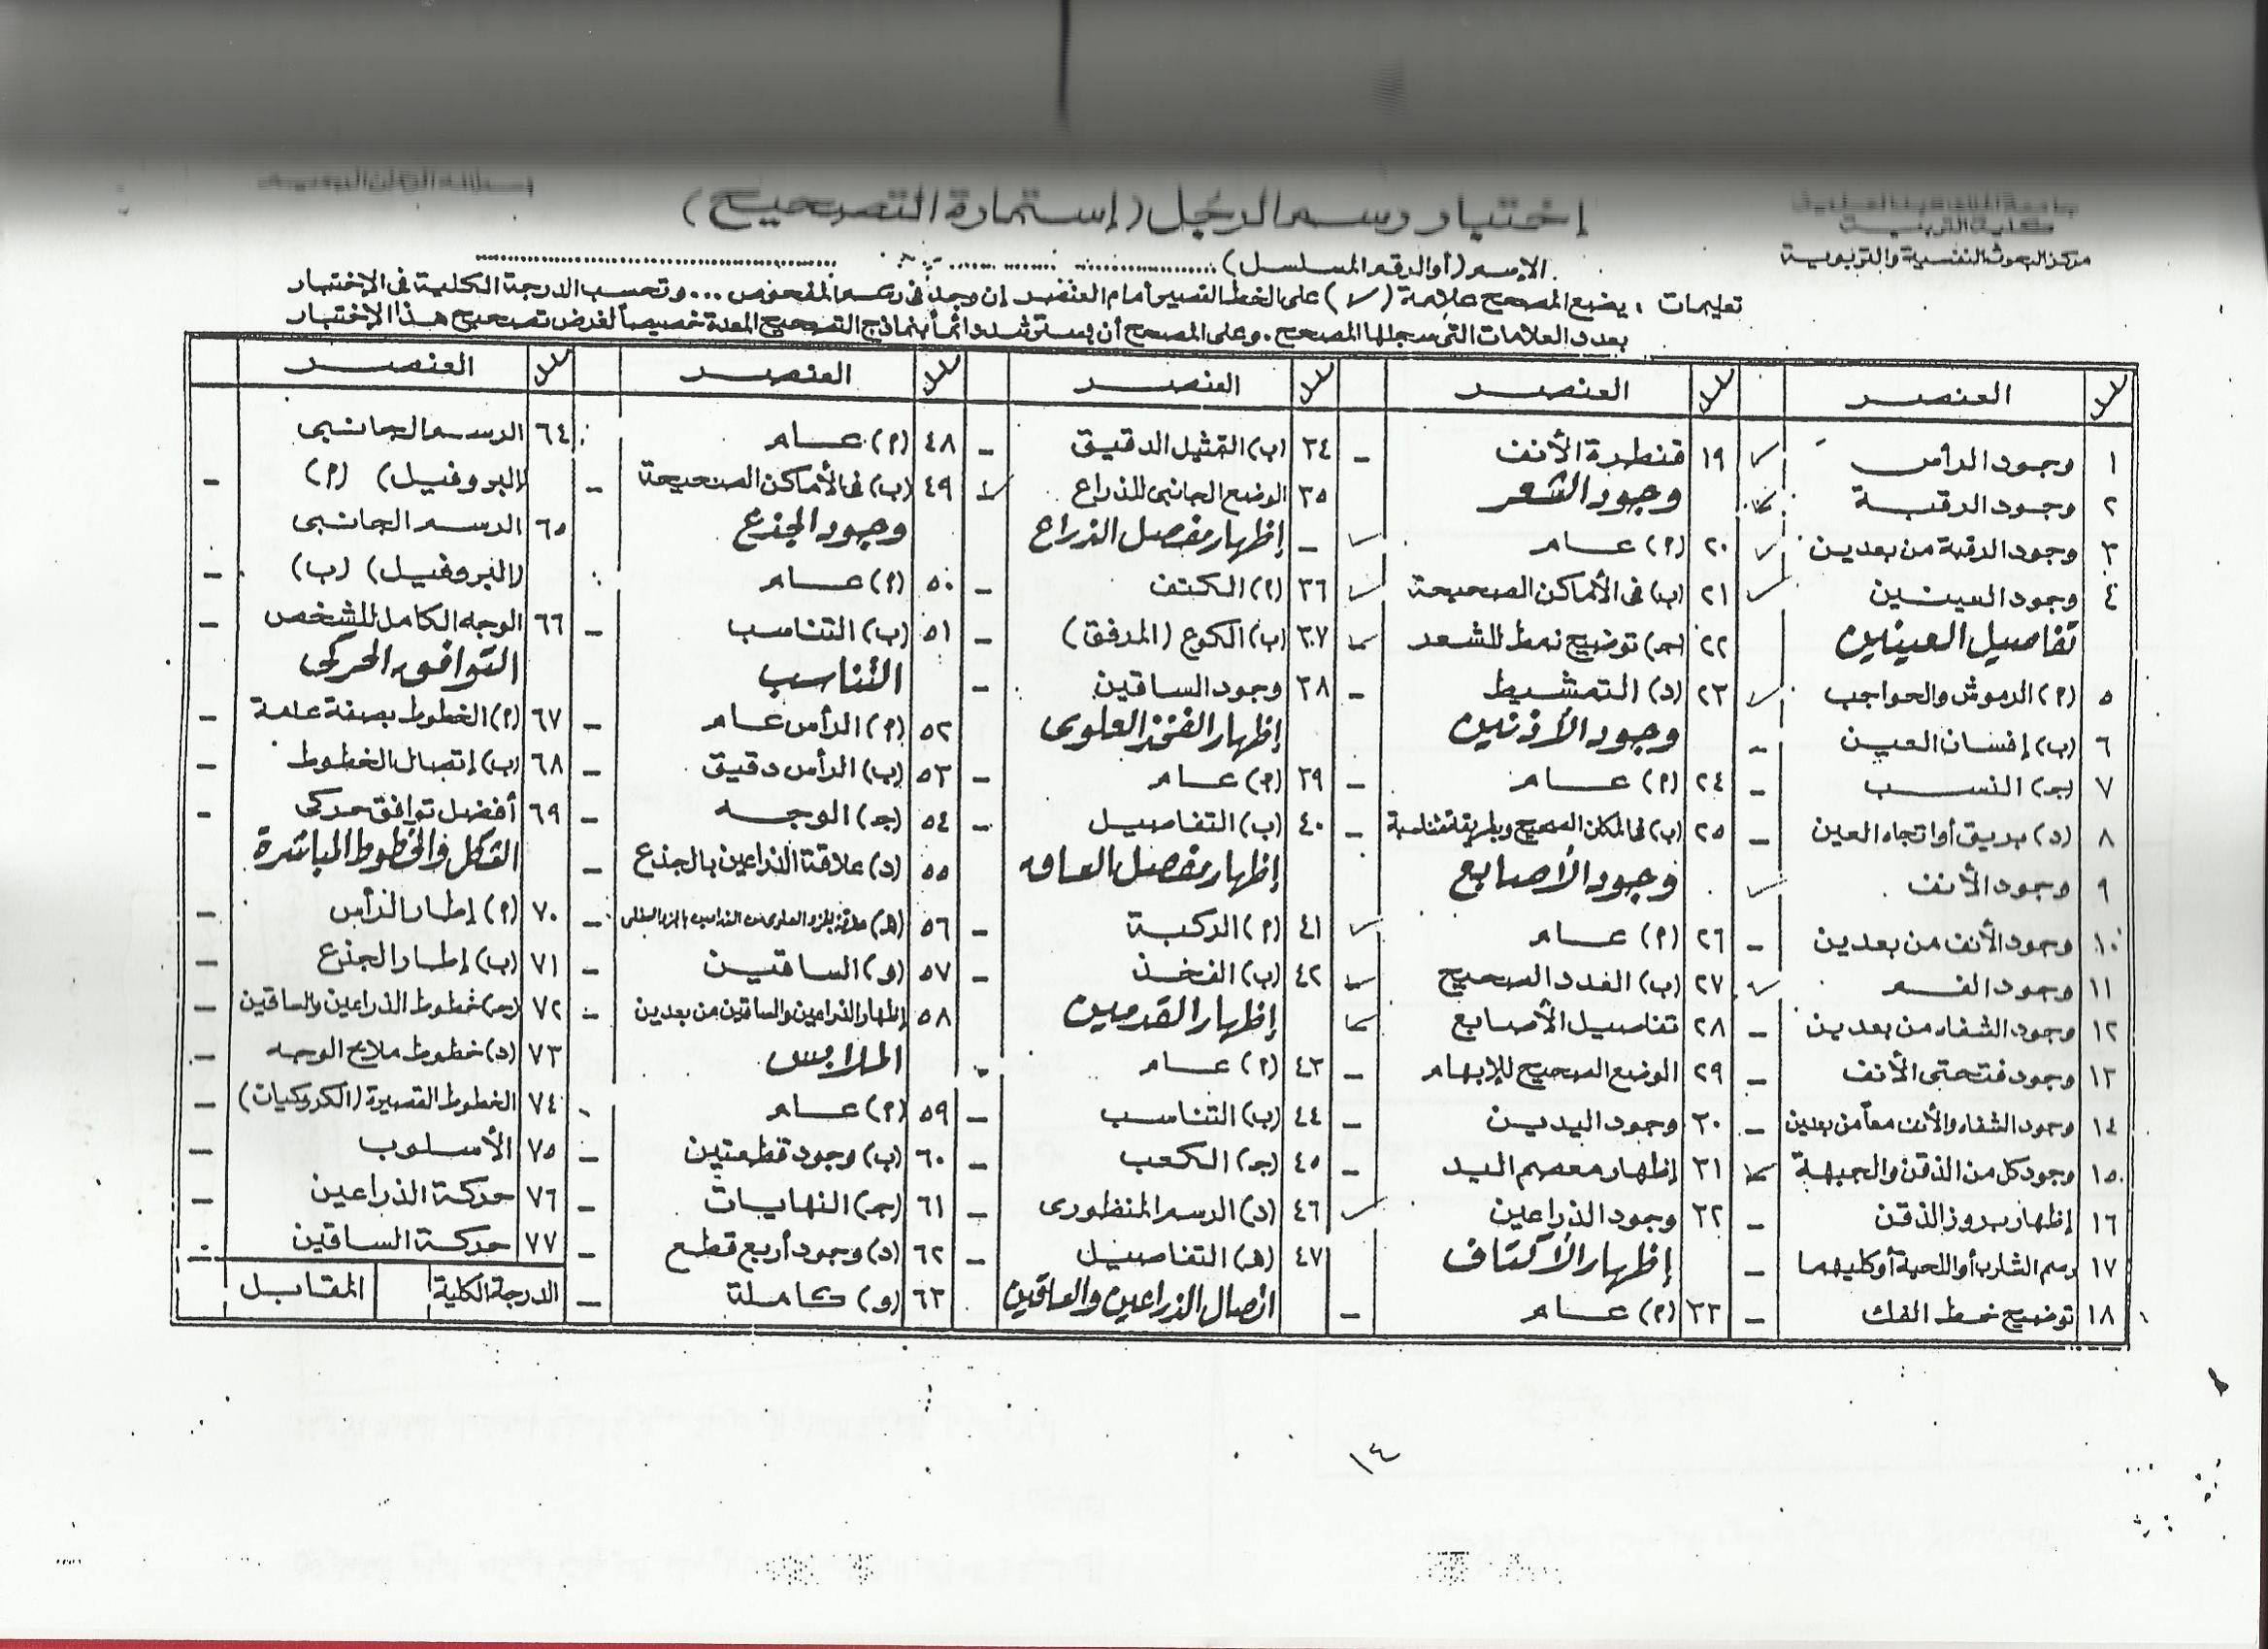 جامعة الملك عبد العزيز
كلية التربية
مركز البحوث النفسية والتربوية
إختبار رسم الرجل (إستمارة التصحيح)
الإسم (أو الرقم المسلسل)
تعليمات : يضع المصحح علامة (✓) على الخط القصير أمام العنصر إن وجد في رسم المفحوص ... وتحسب الدرجة الكلية في الإختبار
بعدد العلامات التي سجلها المصحح . وعلى المصحح أن يسترشد دائماً بنماذج التصحيح المعدة خصيصاً لغرض تصحيح هذا الإختبار
العنصر
١ وجود الرأس ✓
٢ وجود الرقبة ✓
٣ وجود الرقبة من بعدين ✓
٤ وجود العينين ✓
تفاصيل العينين
٥ (٢) الرموش والحواجب ✓
٦ (ب) إنسان العين –
٧ (جـ) النسب –
٨ (د) بريق أو اتجاه العين –
٩ وجود الأنف ✓
١٠ وجود الأنف من بعدين –
١١ وجود الفم ✓
١٢ وجود الشفاه من بعدين –
١٣ وجود فتحتى الأنف –
١٤ وجود الشفاه والأنف معاً من بعدين –
١٥ وجود كل من الذقن والجبهة ✓
١٦ إظهار بروز الذقن –
١٧ رسم الشارب أو اللحية أو كليهما –
١٨ توضيح خط الفك –
العنصر
١٩ قنطرة الأنف –
وجود الشعر
٢٠ (٢) عام ✓
٢١ (ب) في الأماكن الصحيحة ✓
٢٢ (جـ) توضيح نمط للشعر ✓
٢٣ (د) التمشيط –
وجود الأذنين
٢٤ (٢) عام –
٢٥ (ب) في المكان الصحيح وبطريقة متناسبة –
وجود الأصابع
٢٦ (٢) عام ✓
٢٧ (ب) العدد الصحيح ✓
٢٨ تفاصيل الأصابع ✓
٢٩ الوضع الصحيح للإبهام –
٣٠ وجود اليدين –
٣١ إظهار معصم اليد –
٣٢ وجود الذراعين ✓
إظهار الأكتاف
٣٣ (٢) عام –
العنصر
٣٤ (ب) التمثيل الدقيق –
٣٥ الوضع الجانبي للذراع ✓
إظهار مفصل الذراع
٣٦ (٢) الكتف –
٣٧ (ب) الكوع (المرفق) –
٣٨ وجود الساقين –
إظهار الفخذ العلوى
٣٩ (٢) عام –
٤٠ (ب) التفاصيل –
إظهار مفصل الساق
٤١ (٢) الركبة –
٤٢ (ب) الفخذ –
إظهار القدمين
٤٣ (٢) عام –
٤٤ (ب) التناسب –
٤٥ (جـ) الكعب –
٤٦ (د) الرسم المنظورى –
٤٧ (هـ) التفاصيل –
اتصال الذراعين والساقين
العنصر
٤٨ (٢) عام
٤٩ (ب) في الأماكن الصحيحة –
وجود الجذع
٥٠ (٢) عام
٥١ (ب) التناسب –
التناسب
٥٢ (٢) الرأس عام –
٥٣ (ب) الرأس دقيق –
٥٤ (جـ) الوجه –
٥٥ (د) علاقة الذراعين بالجذع –
٥٦ (هـ) علاقة الجزء العلوى من الذراعين بالجزء السفلى –
٥٧ (و) الساقين –
٥٨ إظهار الذراعين والساقين من بعدين –
الملابس
٥٩ (٢) عام
٦٠ (ب) وجود قطعتين –
٦١ (جـ) النهايات –
٦٢ (د) وجود أربع قطع –
٦٣ (و) كاملة –
العنصر
٦٤ الرسم الجانبى
(البروفيل) (٢) –
٦٥ الرسم الجانبى
(البروفيل) (ب) –
٦٦ الوجه الكامل للشخص –
التوافق الحركى
٦٧ (٢) الخطوط بصفة عامة –
٦٨ (ب) إتصال الخطوط –
٦٩ أفضل توافق حركى –
الشكل والخطوط المباشرة
٧٠ (٢) إطار الرأس –
٧١ (ب) إطار الجذع –
٧٢ (جـ) خطوط الذراعين والساقين –
٧٣ (د) خطوط ملامح الوجه –
٧٤ الخطوط القصيرة (الكروكيات) –
٧٥ الأسلوب –
٧٦ حركة الذراعين –
٧٧ حركة الساقين –
الدرجة الكلية المقابل
١٤